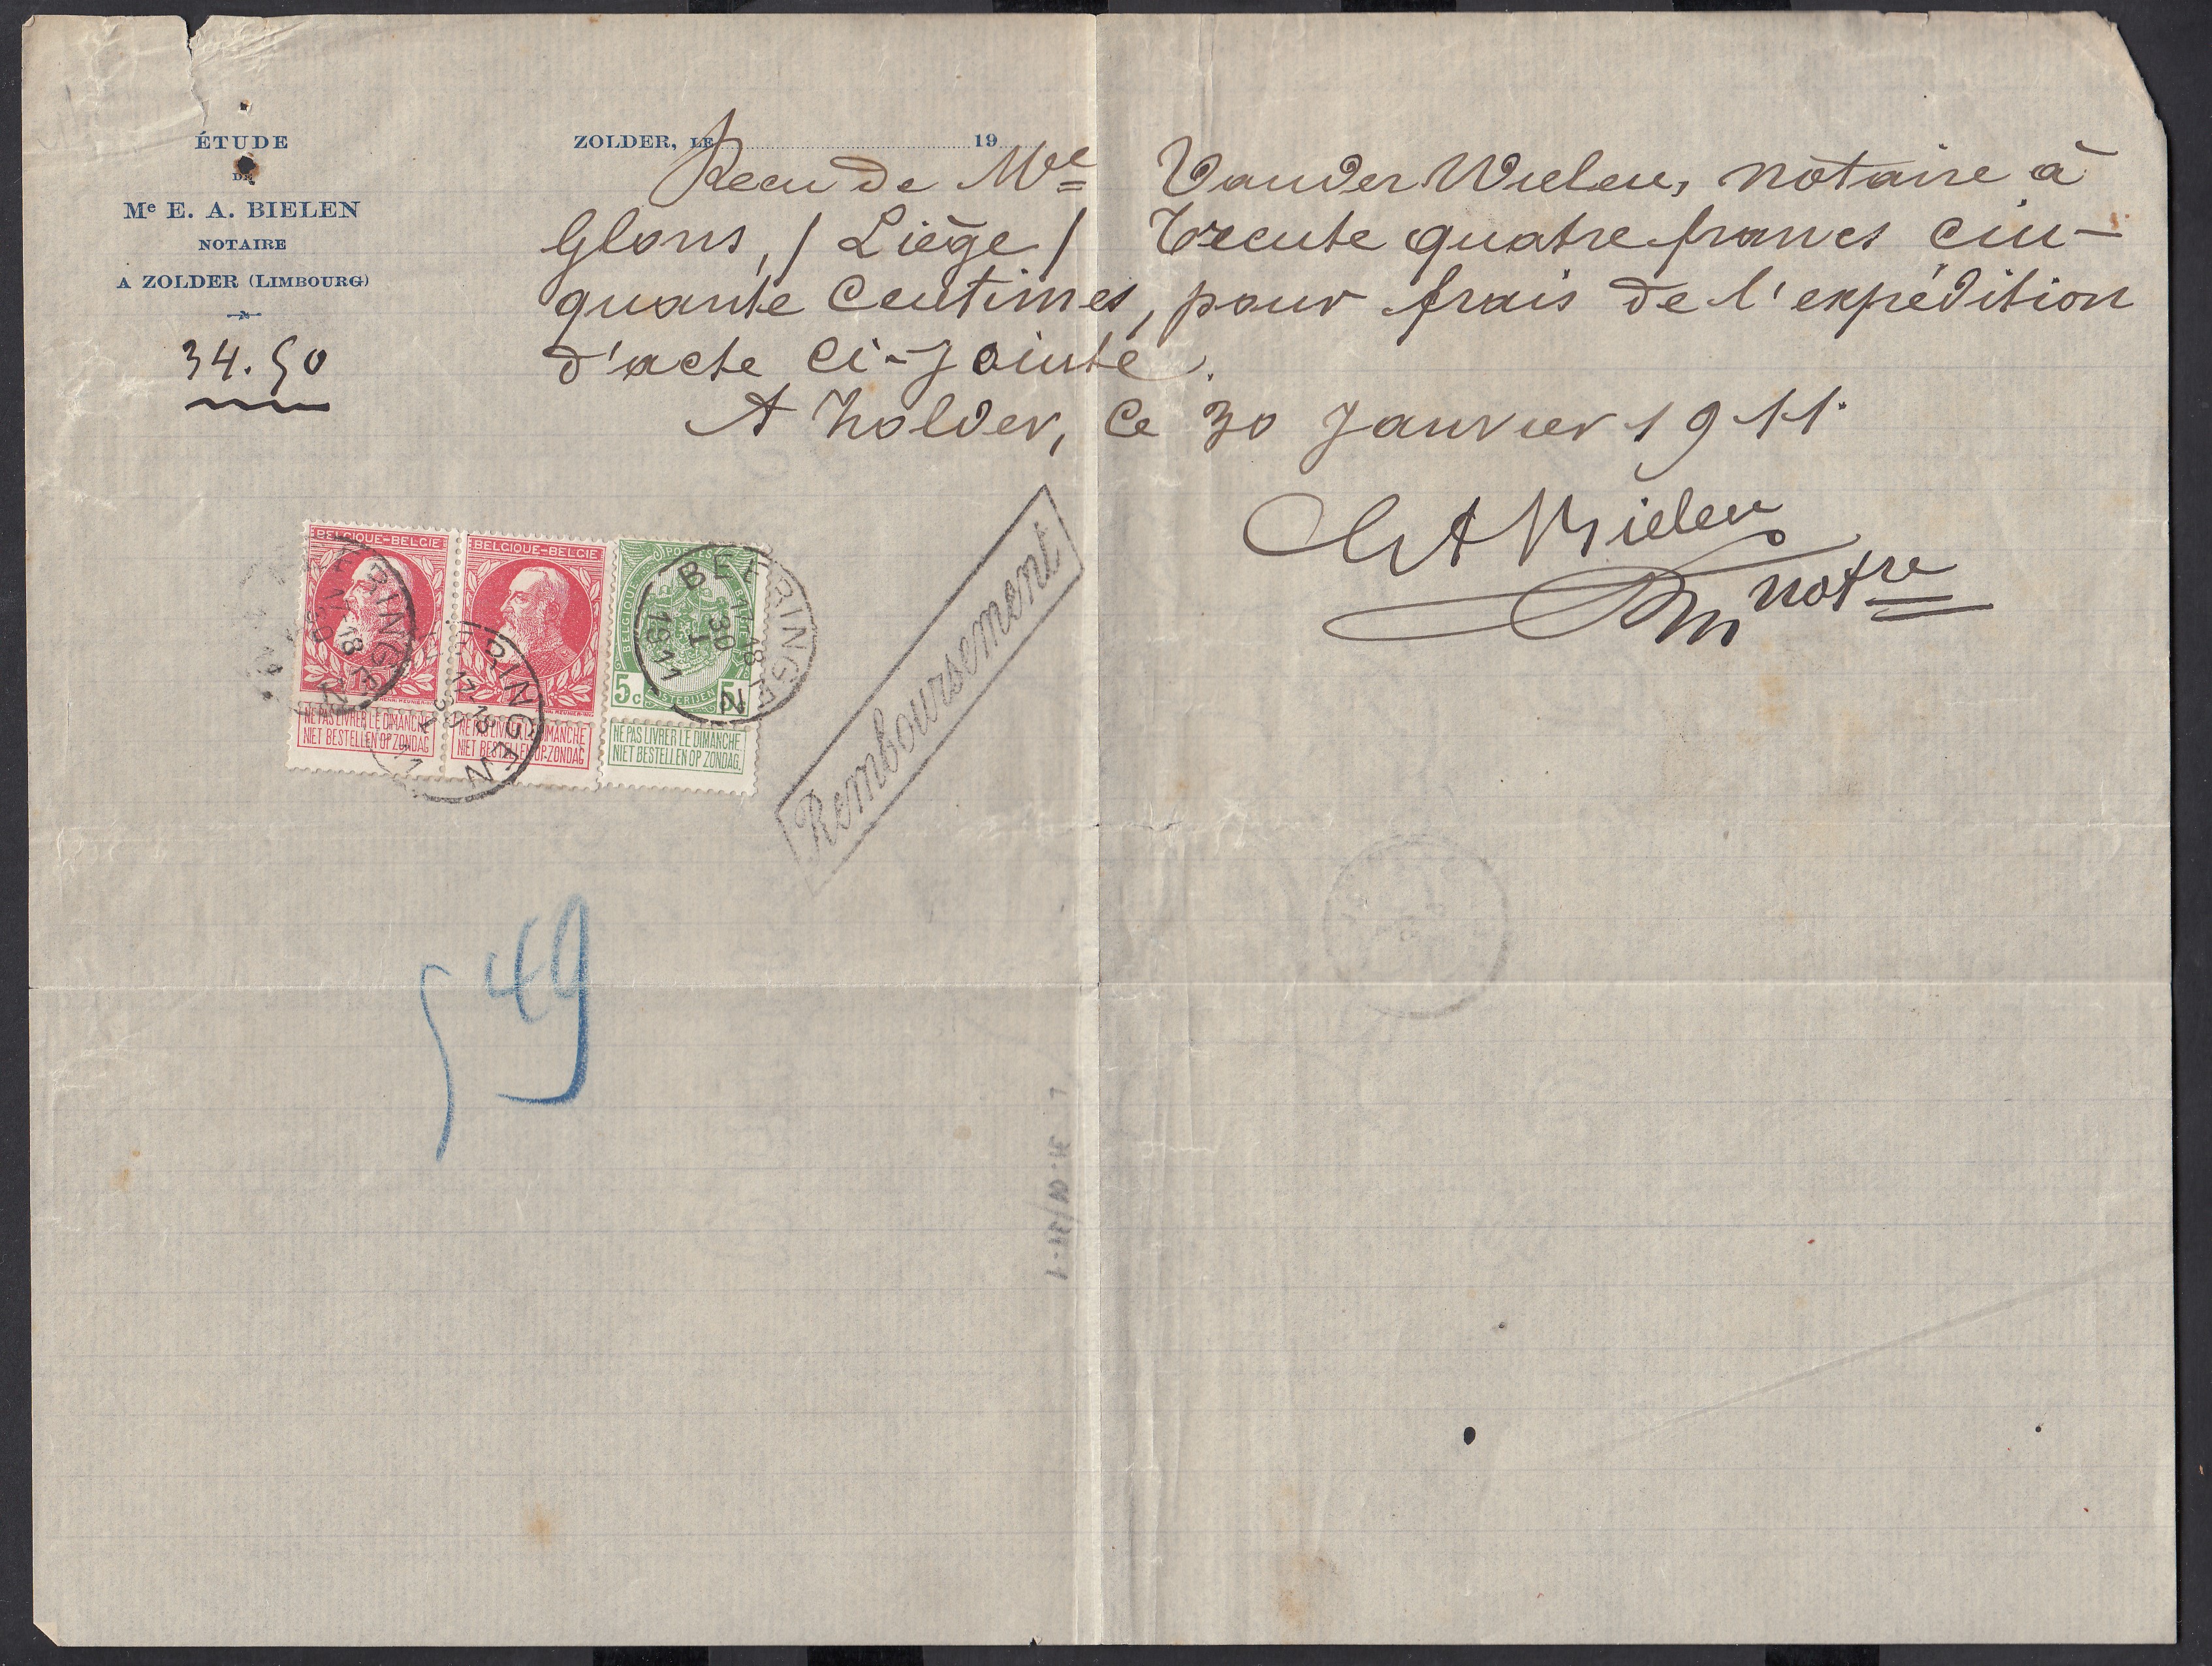 ÉTUDE
DE
Me E. A. BIELEN
NOTAIRE
A ZOLDER (LIMBOURG)
34.50
ZOLDER, LE 19
Recu de Me Vander Wielen, notaire à
Glons, / Liège / trente quatre francs cin-
quante centimes, pour frais de l'expédition
d'acte ci-jointe.
A Zolder, ce 30 Janvier 1911.
EABielen
notre
BELGIQUE-BELGIE
NE PAS LIVRER LE DIMANCHE
NIET BESTELLEN OP ZONDAG
BELGIQUE-BELGIE
NE PAS LIVRER LE DIMANCHE
NIET BESTELLEN OP ZONDAG
POSTES
BELGIQUE
5c
NE PAS LIVRER LE DIMANCHE
NIET BESTELLEN OP ZONDAG.
BEERINGEN
17-18
30
I
1911
Remboursement
549